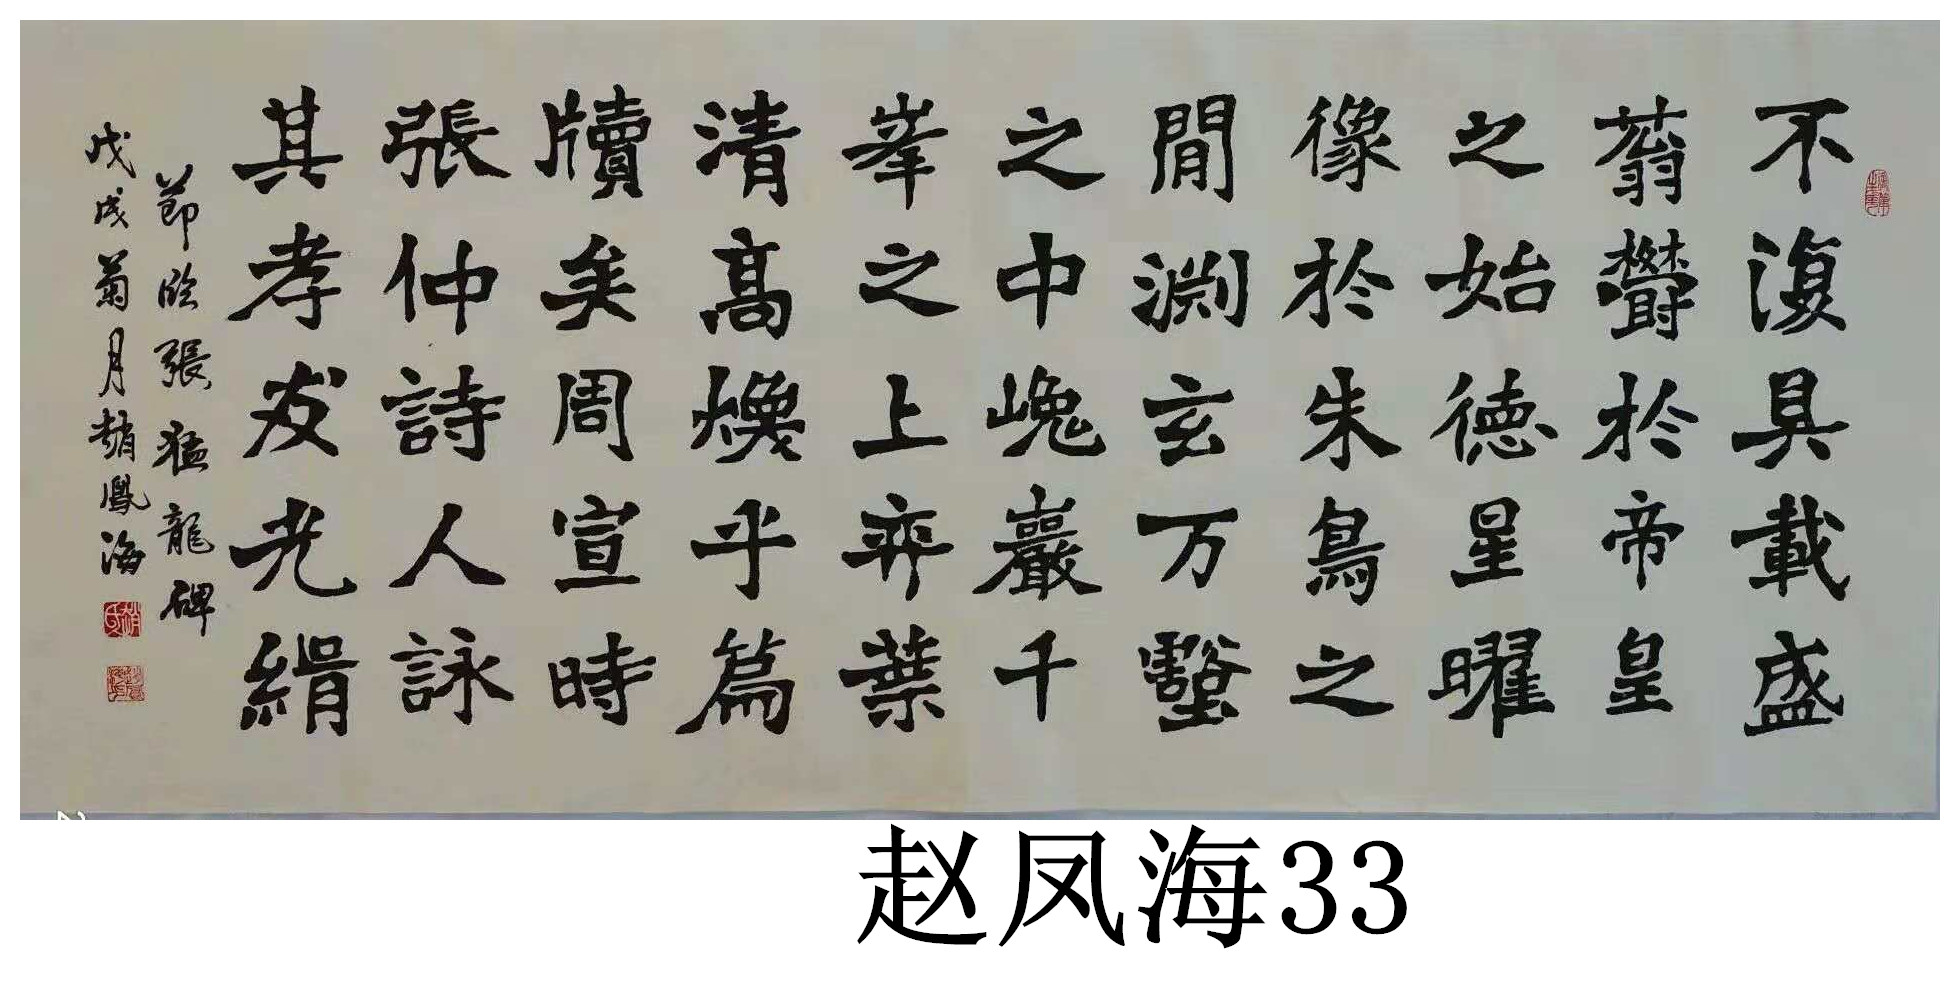 不復具載盛
蓊欝於帝皇
之始德星曜
像於朱鳥之
間淵玄万壑
之中巉巖千
峯之上弈葉
清高煥乎篇
牘矣周宣時
張仲詩人詠
其孝友光緝
節臨張猛龍碑
戊戌菊月趙鳳海
赵凤海33